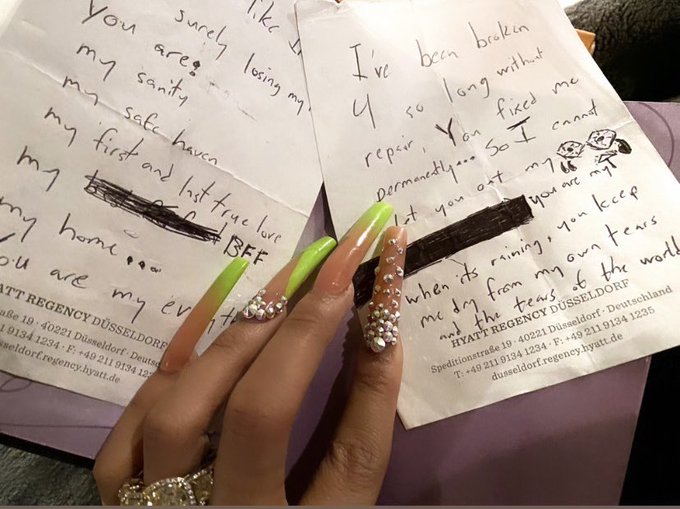 like I
You surely losing my
are:
my sanity
my safe haven
my first and last true love
my BFF
my home...
You are my everyth
HYATT REGENCY DÜSSELDORF
aße 19 · 40221 Düsseldorf · Deutsc
1 9134 1234 · F: +49 211 9134 12
sseldorf.regency.hyatt.de
I've been broken
4 so long without
repair, You fixed me
permanently... So I cannot
let you out my
you are my
when its raining, you keep
me dry from my own tears
and the tears of the world
HYATT REGENCY DÜSSELDORF
Speditionstraße 19 · 40221 Düsseldorf · Deutschland
T: +49 211 9134 1234 · F: +49 211 9134 1235
dusseldorf.regency.hyatt.de